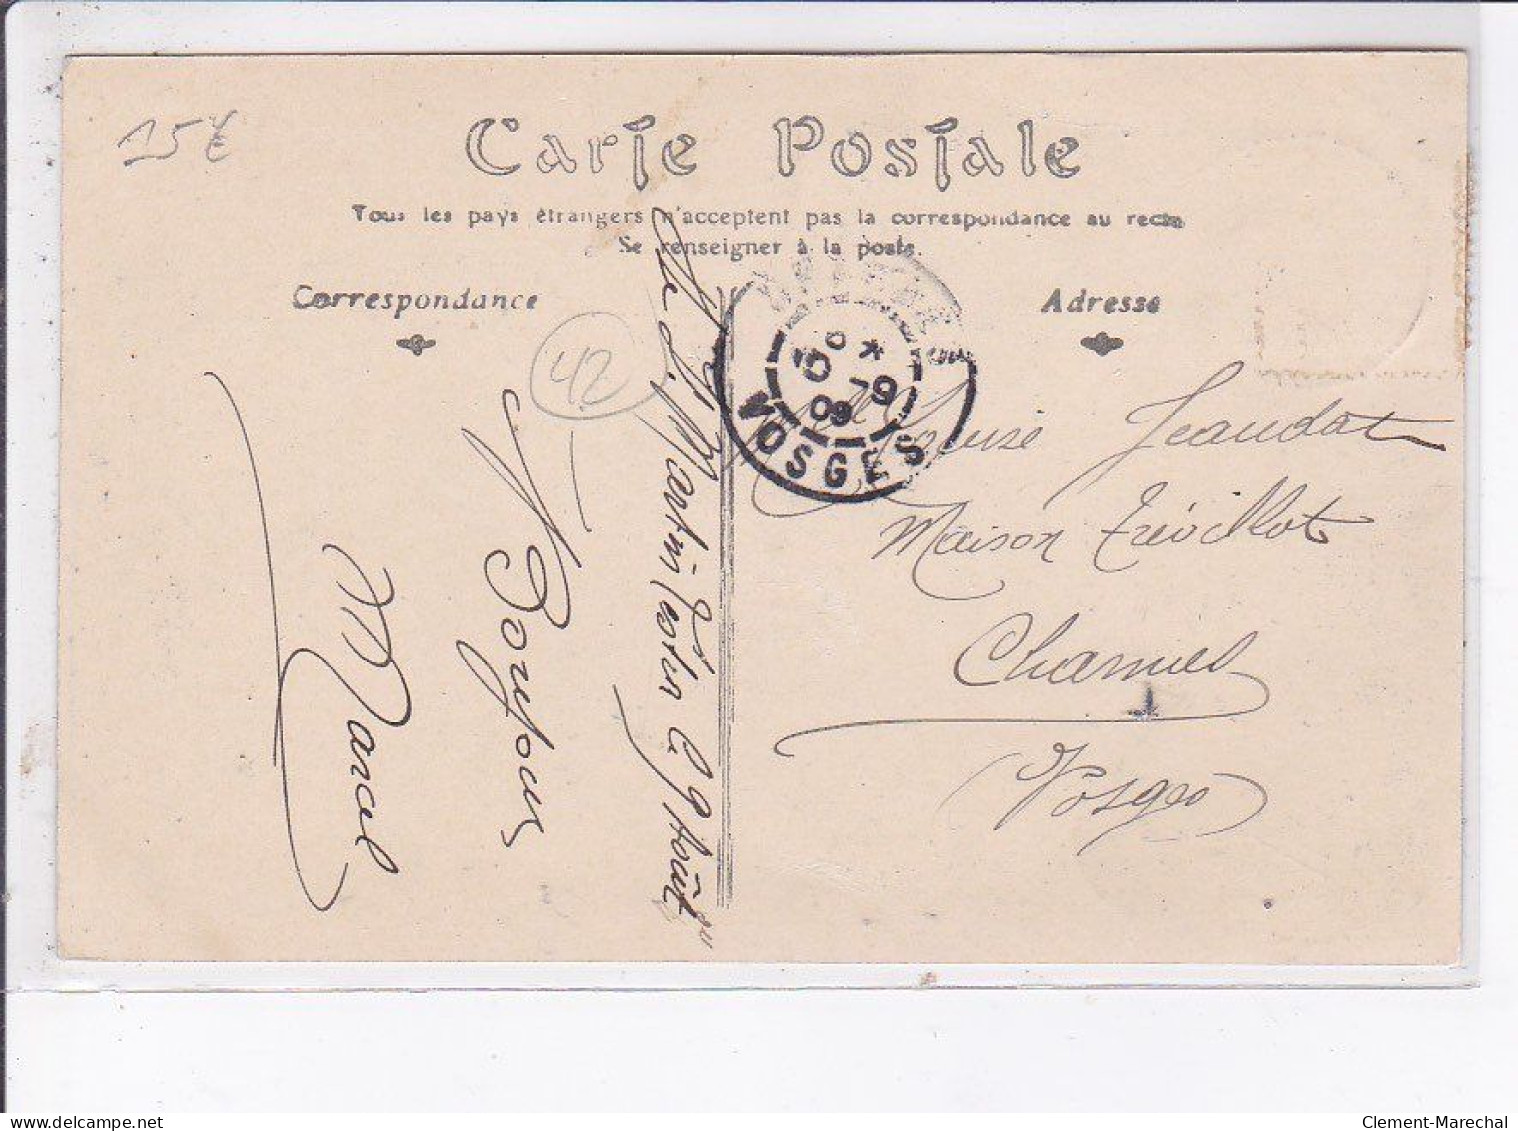 15€
Carte Postale
Tous les pays étrangers n'acceptent pas la correspondance au recto
Se renseigner à la poste.
Correspondance
Adresse
42
VOSGES
09
Louise Jeaudat
Maison Trévillot
Charmes
(Vosges)
le 9 Août
Bonjour
Marcel
delcampe.net
Clement-Marechal